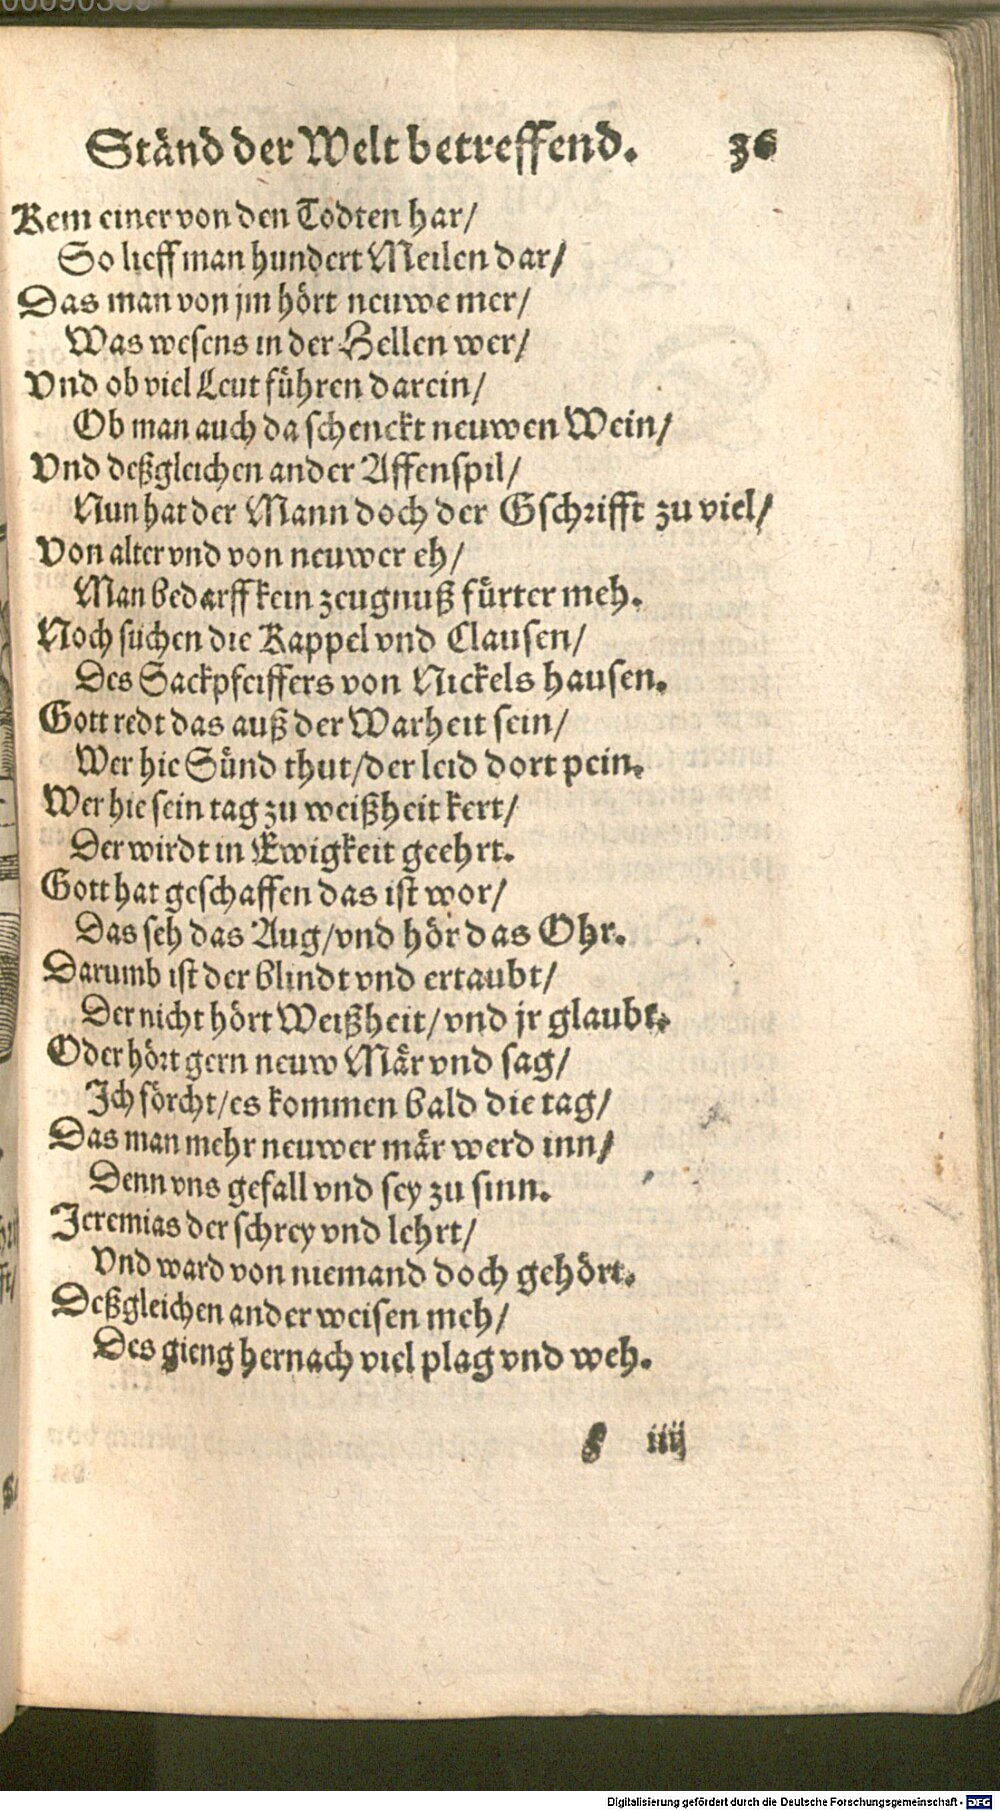 Ständ der Welt betreffend. 36
Kem einer von den Todten har/
So lieff man hundert Meilen dar/
Das man von jm hört neuwe mer/
Was wesens in der Hellen wer/
Vnd ob viel Leut führen darein/
Ob man auch da schenckt neuwen Wein/
Vnd deßgleichen ander Affenspil/
Nun hat der Mann doch der Gschrifft zu viel/
Von alter vnd von neuwer eh/
Man bedarff kein zeugnuß fürter meh.
Noch suchen die Kappel vnd Clausen/
Des Sackpfeiffers von Nickels hausen.
Gott redt das auß der Warheit sein/
Wer hie Sünd thut/der leid dort pein.
Wer hie sein tag zu weißheit kert/
Der wirdt in Ewigkeit geehrt.
Gott hat geschaffen das ist wor/
Das seh das Aug/vnd hör das Ohr.
Darumb ist der blindt vnd ertaubt/
Der nicht hört Weißheit/vnd jr glaubt.
Oder hört gern neuw Mär vnd sag/
Ich förcht/es kommen bald die tag/
Das man mehr neuwer mär werd inn/
Denn vns gefall vnd sey zu sinn.
Jeremias der schrey vnd lehrt/
Vnd ward von niemand doch gehört.
Deßgleichen ander weisen meh/
Des gieng hernach viel plag vnd weh.
iiij
Digitalisierung gefördert durch die Deutsche Forschungsgemeinschaft - DFG